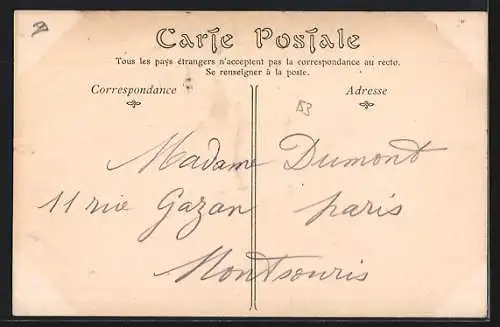 Carte Postale
Tous les pays étrangers n'acceptent pas la correspondance au recto.
Se renseigner à la poste.
Correspondance
Adresse
Madame Dumont
11 rue Gazan paris
Montsouris